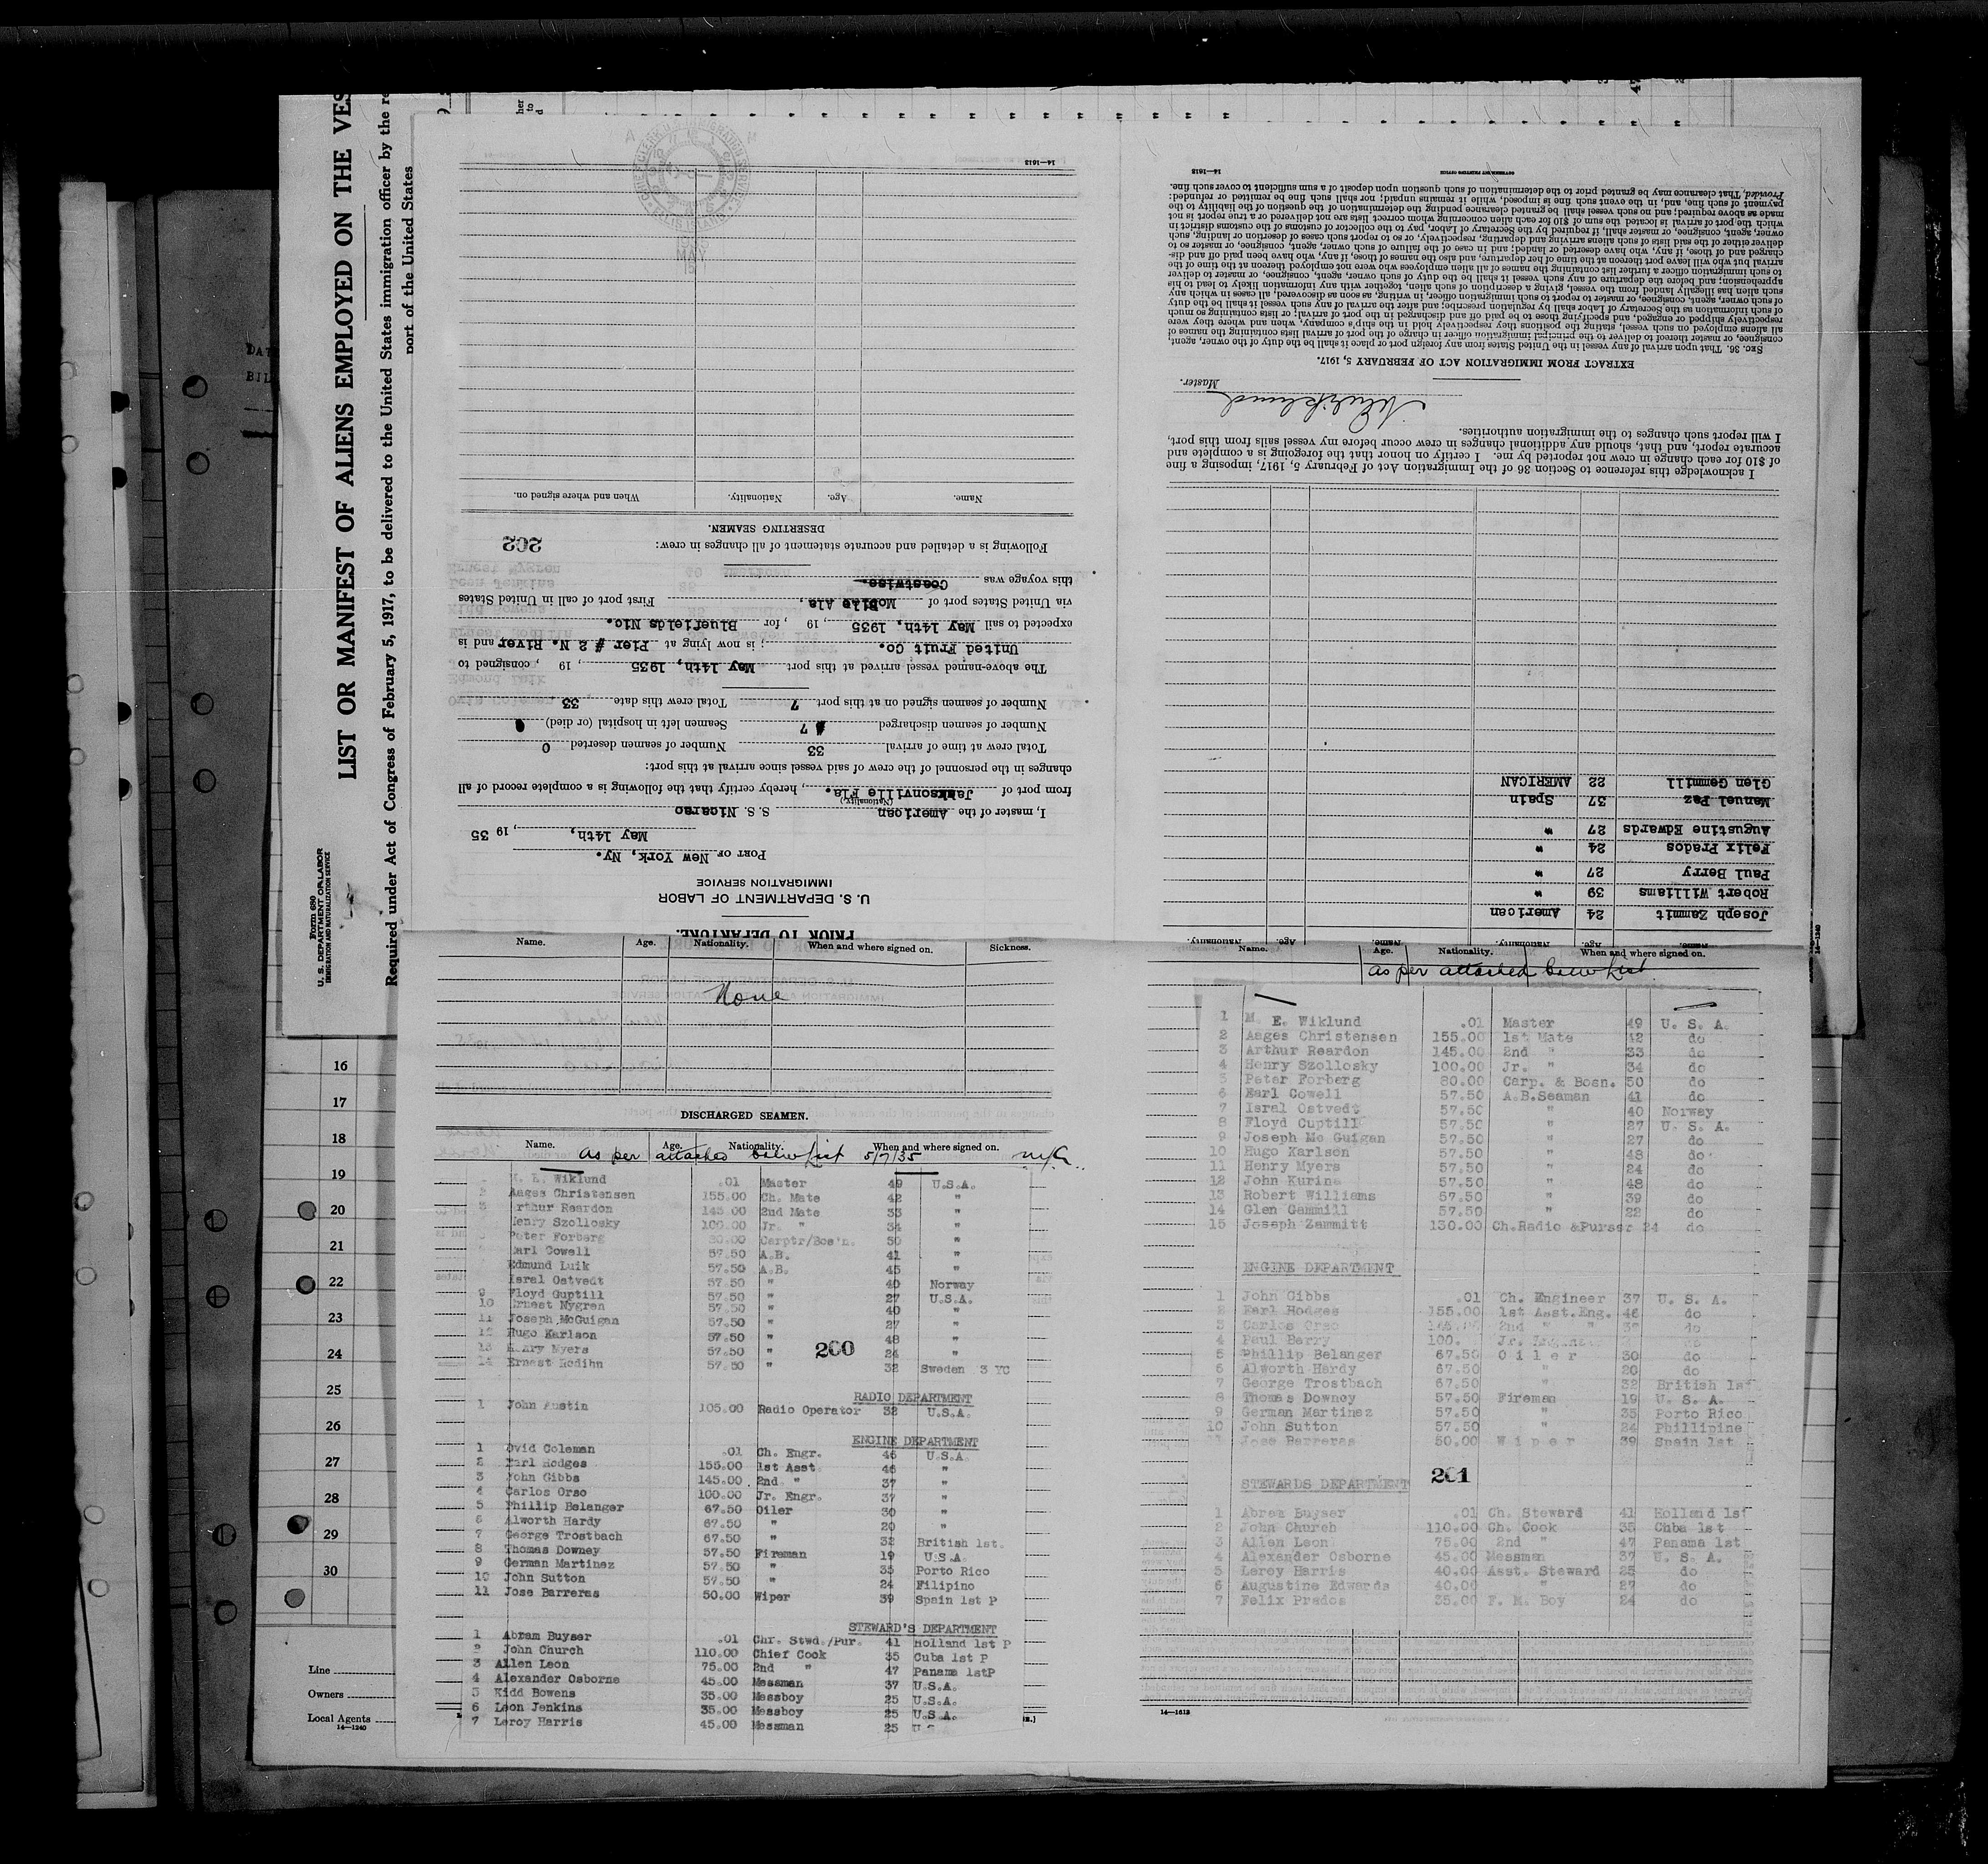 LIST OR MANIFEST OF ALIENS EMPLOYED ON THE VES
Required under Act of Congress of February 5, 1917, to be delivered to the United States immigration officer by the re
port of the United States
Form 680
U. S. DEPARTMENT OF LABOR
IMMIGRATION AND NATURALIZATION SERVICE
PRIOR TO DEPARTURE.
U. S. DEPARTMENT OF LABOR
IMMIGRATION SERVICE
PORT OF New York, Ny.
May 14th, , 19 35
I, master of the American S. S. Nicarao
(Nationality,)
from port of Jacksonville Fla. , hereby certify that the following is a complete record of all
changes in the personnel of the crew of said vessel since arrival at this port:
Total crew at time of arrival 33 Number of seamen deserted 0
Number of seamen discharged 7 Seamen left in hospital (or died)
Number of seamen signed on at this port 7 Total crew this date 33
The above-named vessel arrived at this port May 14th, 1935 , 19 , consigned to
United Fruit Co. ; is now lying at Pier # 2 N. River, and is
expected to sail May 14th, 1935 , 19 , for Bluefields Nic.
via United States port of Mobile Ala, First port of call in United States
this voyage was Coastwise.
Following is a detailed and accurate statement of all changes in crew: 202
DESERTING SEAMEN.
Name. Age. Nationality. When and where signed on.
14—1613
Name. Age. Nationality. Name. Age. Nationality.
Joseph Zammit 24 American
Robert Williams 39 "
Paul Berry 27 "
Felix Prados 24 "
Augustine Edwards 27 "
Manuel Paz 37 Spain
Glen Gemmill 22 AMERICAN
I acknowledge this reference to Section 36 of the Immigration Act of February 5, 1917, imposing a fine
of $10 for each change in crew not reported by me. I certify on honor that the foregoing is a complete and
accurate report, and that, should any additional changes in crew occur before my vessel sails from this port,
I will report such changes to the immigration authorities.
Master.
EXTRACT FROM IMMIGRATION ACT OF FEBRUARY 5, 1917.
SEC. 36. That upon arrival of any vessel in the United States from any foreign port or place it shall be the duty of the owner, agent,
consignee, or master thereof to deliver to the principal immigration officer in charge of the port of arrival lists containing the names of
all aliens employed on such vessel, stating the positions they respectively hold in the ship's company, when and where they were
respectively shipped or engaged, and specifying those to be paid off and discharged in the port of arrival; or lists containing so much
of such information as the Secretary of Labor shall by regulation prescribe; and after the arrival of any such vessel it shall be the duty
of such owner, agent, consignee, or master to report to such immigration officer, in writing, as soon as discovered, all cases in which any
such alien has illegally landed from the vessel, giving a description of such alien, together with any information likely to lead to his
apprehension; and before the departure of any such vessel it shall be the duty of such owner, agent, consignee, or master to deliver
to such immigration officer a further list containing the names of all alien employees who were not employed thereon at the time of the
arrival but who will leave port thereon at the time of her departure, and also the names of those, if any, who have been paid off and dis-
charged and of those, if any, who have deserted or landed; and in case of the failure of such owner, agent, consignee, or master so to
deliver either of the said lists of such aliens arriving and departing, respectively, or so to report such cases of desertion or landing, such
owner, agent, consignee, or master, shall, if required by the Secretary of Labor, pay to the collector of customs of the customs district in
which the port of arrival is located the sum of $10 for each alien concerning whom correct lists are not delivered or a true report is not
made as above required; and no such vessel shall be granted clearance pending the determination of the question of the liability to the
payment of such fine, and, in the event such fine is imposed, while it remains unpaid; nor shall such fine be remitted or refunded:
Provided, That clearance may be granted prior to the determination of such question upon deposit of a sum sufficient to cover such fine.
GOVERNMENT PRINTING OFFICE 14—1613
Name. Age. Nationality. When and where signed on. Sickness.
None
DISCHARGED SEAMEN.
Name. Age. Nationality. When and where signed on.
as per attached Crew List 5/7/35
M. E. Wiklund .01 Master 49 U.S.A.
2 Aages Christensen 155.00 Ch. Mate 42 "
3 Arthur Reardon 145.00 2nd Mate 33 "
Henry Szollosky 100.00 Jr. " 34 "
Peter Forberg 80.00 Carptr/Bos'n. 50 "
Earl Cowell 57.50 A.B. 41 "
Edmund Luik 57.50 A.B. 45 "
Isral Ostvedt 57.50 " 40 Norway
9 Floyd Guptill 57.50 " 27 U.S.A.
10 Ernest Nygren 57.50 " 40 "
11 Joseph McGuigan 57.50 " 27 "
12 Hugo Karlson 57.50 " 48 "
13 Henry Myers 57.50 " 24 "
200
14 Ernest Hedihn 57.50 " 32 Sweden 3 YC
RADIO DEPARTMENT
1 John Austin 105.00 Radio Operator 32 U.S.A.
ENGINE DEPARTMENT
1 Ovid Coleman .01 Ch. Engr. 46 U.S.A.
2 Earl Hodges 155.00 1st Asst. 46 "
3 John Gibbs 145.00 2nd " 37 "
4 Carlos Orso 100.00 Jr. Engr. 37 "
5 Phillip Belanger 67.50 Oiler 30 "
6 Alworth Hardy 67.50 " 20 "
7 George Trostbach 67.50 " 32 British 1st.
8 Thomas Downey 57.50 Fireman 19 U.S.A.
9 German Martinez 57.50 " 35 Porto Rico
10 John Sutton 57.50 " 24 Filipino
11 Jose Barreras 50.00 Wiper 39 Spain 1st P
STEWARD'S DEPARTMENT
1 Abram Buyser .01 Chr. Stwd./Pur. 41 Holland 1st P
2 John Church 110.00 Chief Cook 35 Cuba 1st P
3 Allen Leon 75.00 2nd " 47 Panama 1stP
4 Alexander Osborne 45.00 Messman 37 U.S.A.
5 Kidd Bowens 35.00 Messboy 25 U.S.A.
6 Leon Jenkins 35.00 Messboy 25 U.S.A.
7 Leroy Harris 45.00 Messman 25 U.S
Name. Age. Nationality. When and where signed on.
as per attached Crew List.
1 M. E. Wiklund .01 Master 49 U. S. A.
2 Aages Christensen 155.00 1st Mate 42 do
3 Arthur Reardon 145.00 2nd " 33 do
4 Henry Szollosky 100.00 Jr. " 34 do
5 Peter Forberg 80.00 Carp. & Bosn. 50 do
6 Earl Cowell 57.50 A.B.Seaman 41 do
7 Isral Ostvedt 57.50 " 40 Norway
8 Floyd Guptill 57.50 " 27 U. S. A.
9 Joseph Mc Guigan 57.50 " 27 do
10 Hugo Karlson 57.50 " 48 do
11 Henry Myers 57.50 " 24 do
12 John Kurine 57.50 " 48 do
13 Robert Williams 57.50 " 39 do
14 Glen Gammill 57.50 " 22 do
15 Joseph Zammitt 130.00 Ch.Radio &Purser 24 do
ENGINE DEPARTMENT
1 John Gibbs .01 Ch. Engineer 37 U. S. A.
2 Earl Hodges 155.00 1st Asst.Eng. 46 do
3 Carlos Orso 145.00 2nd " " 37 do
4 Paul Berry 100. Jr.
5 Phillip Belanger 67.50 O i l e r 30 do
6 Alworth Hardy 67.50 " 20 do
7 George Trostbach 67.50 " 32 British 1st
8 Thomas Downey 57.50 Fireman 19 U. S. A.
9 German Martinez 57.50 " 35 Porto Rico
10 John Sutton 57.50 " 24 Phillipine
11 Jose Barreras 50.00 W i p e r 39 Spain 1st
STEWARDS DEPARTMENT 201
1 Abram Buyser .01 Ch. Steward 41 Holland 1st
2 John Church 110.00 Ch. Cook 35 Cuba 1st
3 Allen Leon 75.00 2nd " 47 Panama 1st
4 Alexander Osborne 45.00 Messman 37 U. S. A.
5 Leroy Harris 40.00 Asst. Steward 25 do
6 Augustine Edwards 40.00 " 27 do
7 Felix Prados 35.00 F. M. Boy 24 do
14—1613
16
17
18
19
20
21
22
23
24
25
26
27
28
29
30
Line
Owners
Local Agents
14—1240